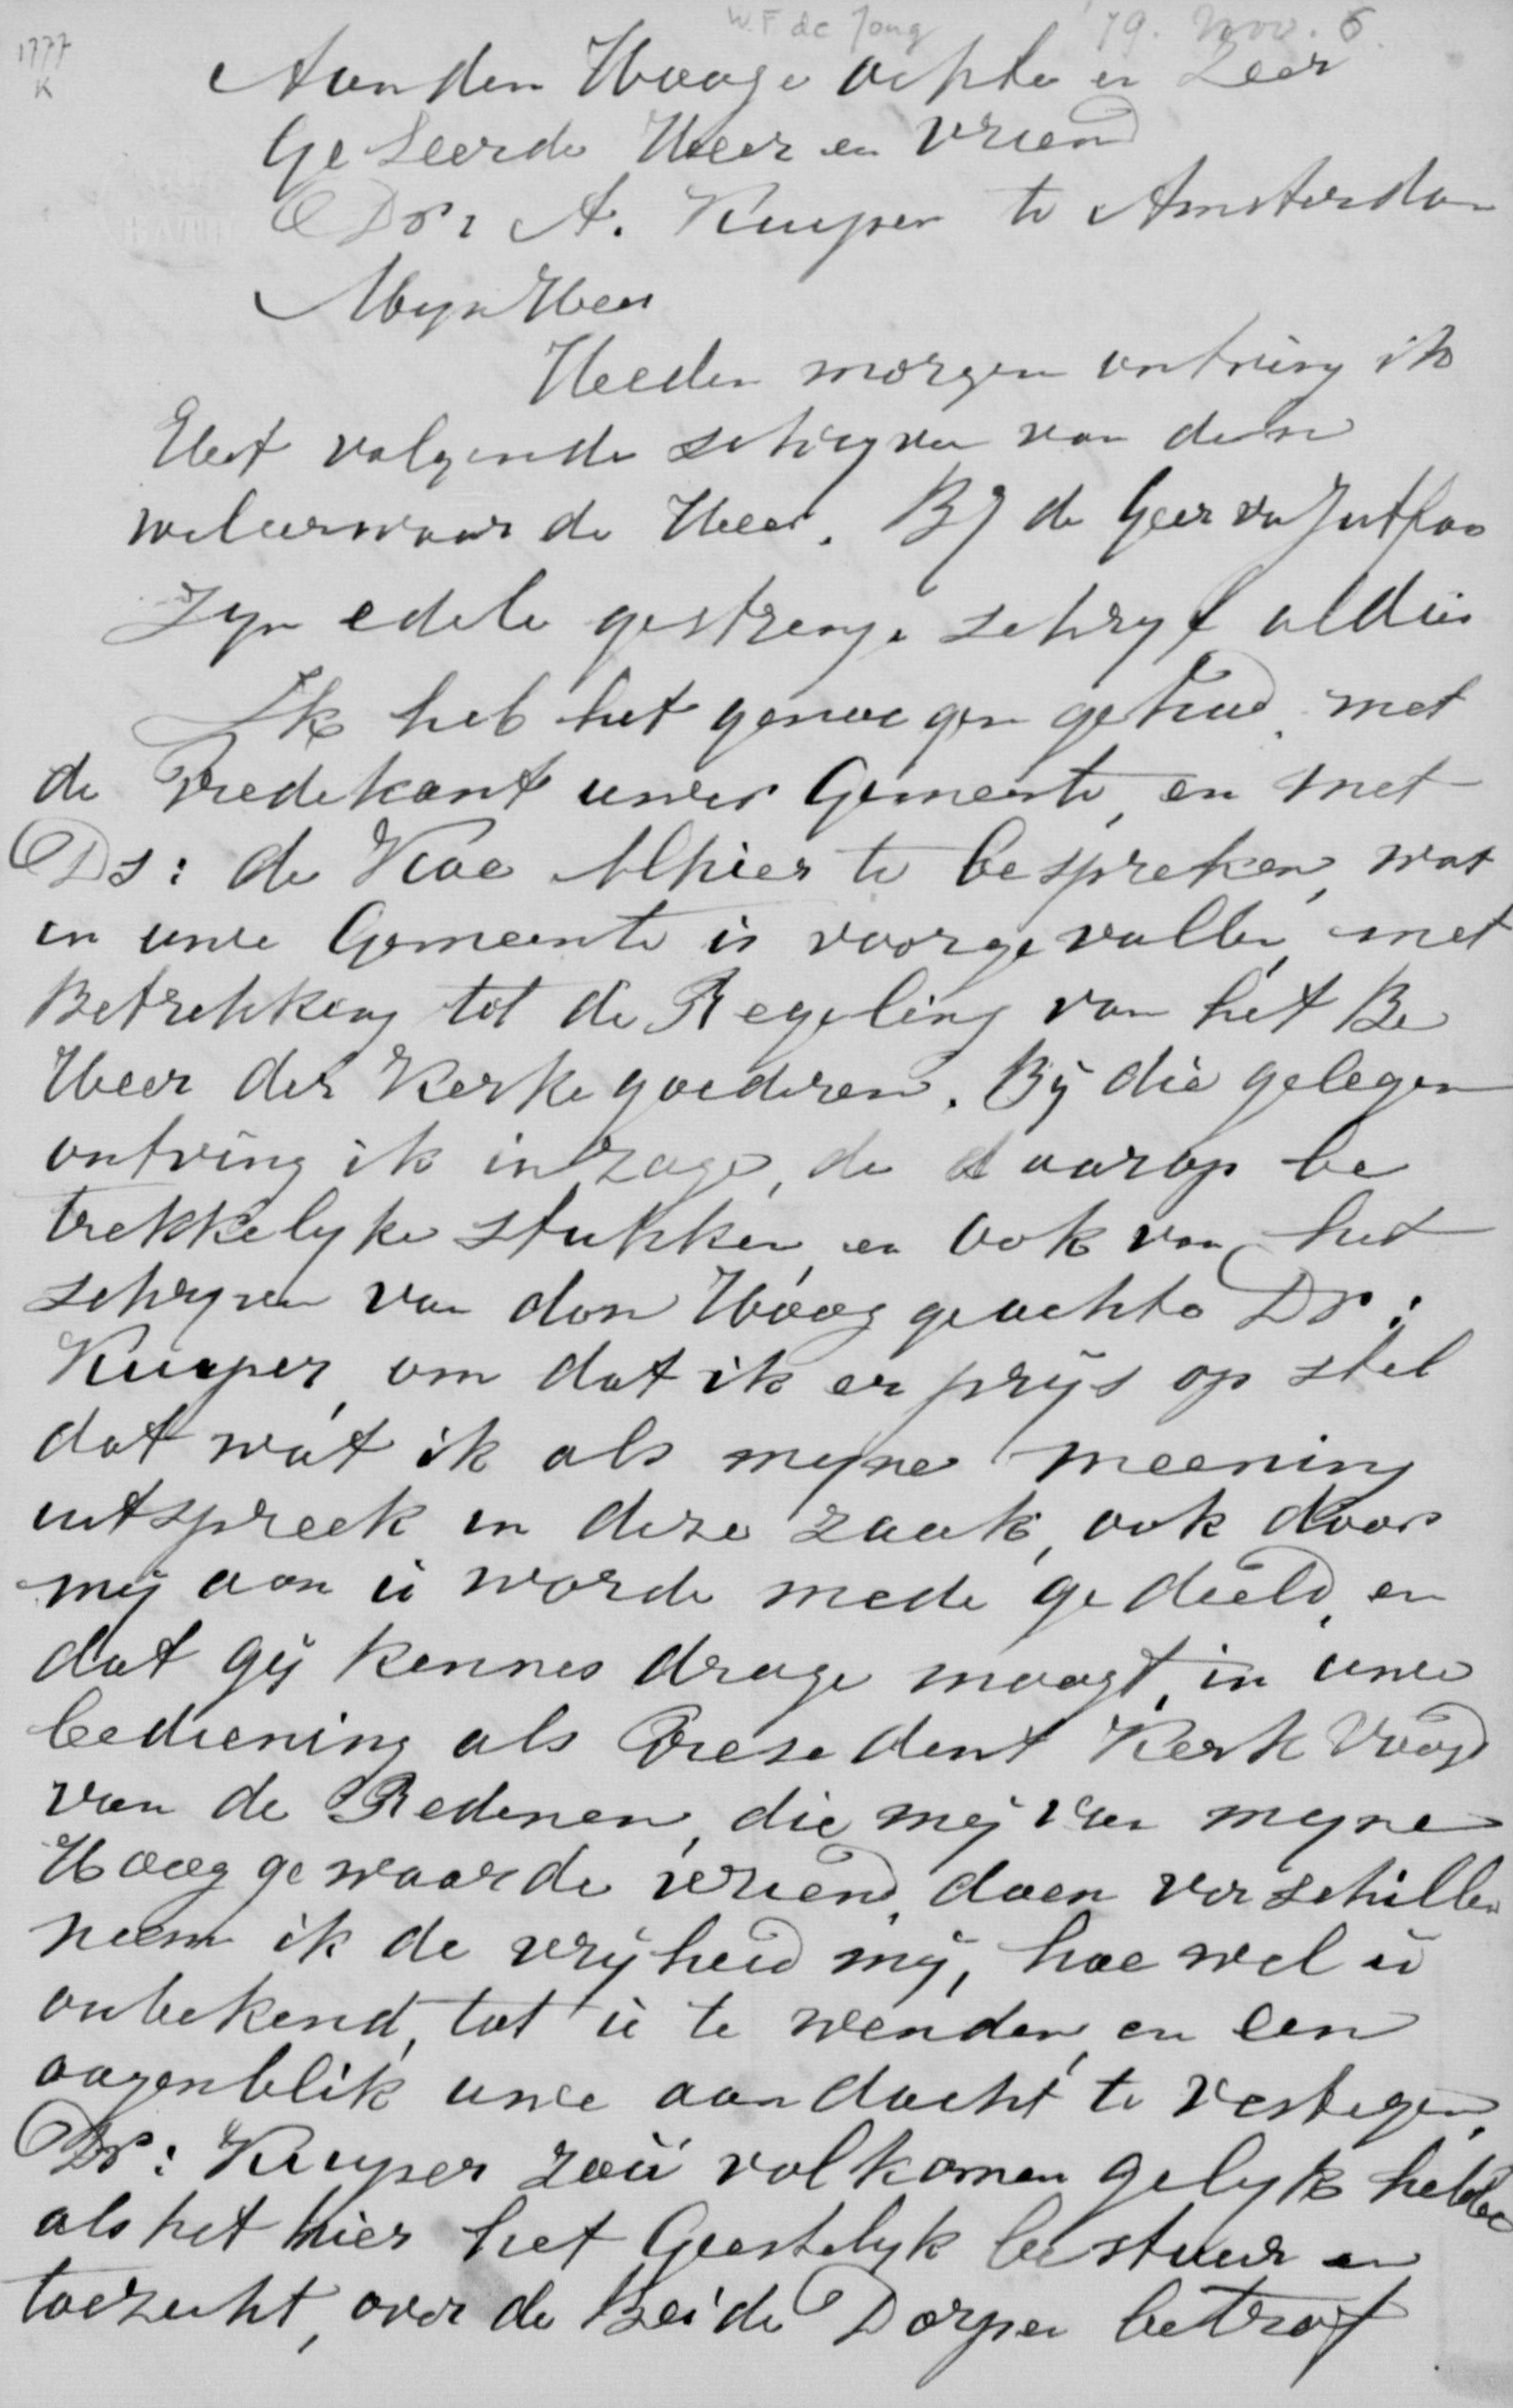 W.F de Jong '79. Nov. 6.
1777
K
Aan den Hooge achte en Zeer
Geleerde Heer en Vriend
Dr: A. Kuyper te Amsterdam
Myn Heer
Heeden morgen ontving ik
Het volgende schryven van den
weleerwaarde Heer. B J de Geer va Jutfaas
Zyn edele gestrenge schryf aldus
Ik heb het genoegen gehad, met
de Predekant uwer Gemeente, en met
Ds: de Koe Alhier te bespreken, wat
in uwe Gemeente is voorgevallen, met
Betrekking tot de Regeling van het Be
Heer der Kerkegoederen. By die gelegen
ontving ik inzage, de daarop be
trekkelyke stukken, en ook van het
schryven van den Hoog geachte Dr:
Kuyper, om dat ik er prys op stel
dat wat ik als myne meening
uitspreek in deze zaak, ook door
mij aan u worde mede gedeeld, en
dat gij kennes drage moogt, in uwe
bediening als Presedent Kerk Voogd
van de Redenen, die mij van myne
Hoog gewaarde vriend, doen verschillen
neem ik de vrijheid mij, hoe wel u
onbekend, tot u te wenden, en een
oogenblik uwe aandacht te vestegen,
Dr: Kuyper zou volkomen gelyk hebben
als het hier het Geestelyk bestuur en
toezecht, over de Beide Dorpen betrof